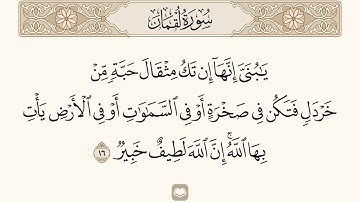 سُورَةُ لُقْمَانَ
يَٰبُنَيَّ إِنَّهَآ إِن تَكُ مِثْقَالَ حَبَّةٖ مِّنۡ
خَرۡدَلٖ فَتَكُن فِي صَخۡرَةٍ أَوۡ فِي ٱلسَّمَٰوَٰتِ أَوۡ فِي ٱلۡأَرۡضِ يَأۡتِ
بِهَا ٱللَّهُۚ إِنَّ ٱللَّهَ لَطِيفٌ خَبِيرٞ ١٦